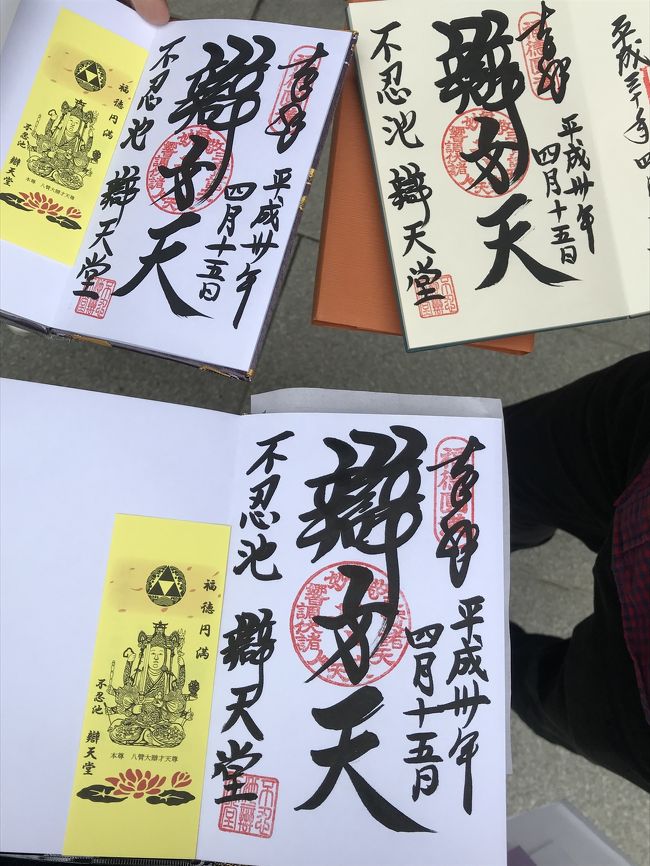 奉拝
平成卅年
四月十五日
辯才天
不忍池 辯天堂
福徳円満
不忍池 辯天堂
本尊 八臂大辯才天尊
平成三十年 四
奉拝
平成卅年
四月十五日
辯才天
不忍池 辯天堂
奉拝
平成卅年
四月十五日
辯才天
不忍池 辯天堂
福徳円満
不忍池 辯天堂
本尊 八臂大辯才天尊